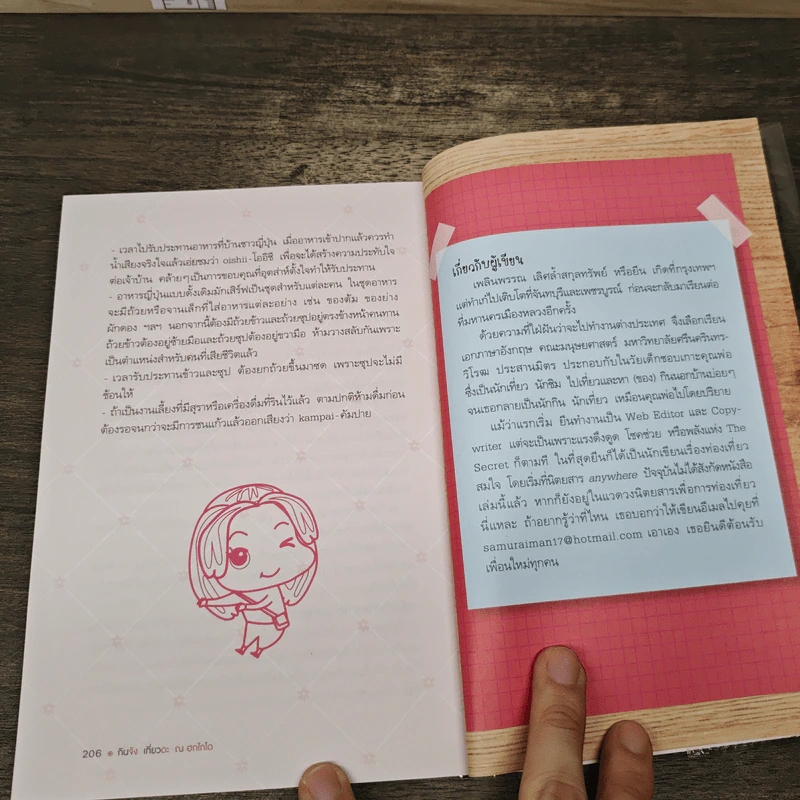 - เวลาไปรับประทานอาหารที่บ้านชาวญี่ปุ่น เมื่ออาหารเข้าปากแล้วควรทำ
น้ำเสียงจริงใจแล้วเอ่ยชมว่า oishii-โออิชี เพื่อจะได้สร้างความประทับใจ
ต่อเจ้าบ้าน คล้ายๆเป็นการขอบคุณที่อุตส่าห์ตั้งใจทำให้รับประทาน
- อาหารญี่ปุ่นแบบดั้งเดิมมักเสิร์ฟเป็นชุดสำหรับแต่ละคน ในชุดอาหาร
จะมีถ้วยหรือจานเล็กที่ใส่อาหารแต่ละอย่าง เช่น ของต้ม ของย่าง
ผักดอง ฯลฯ นอกจากนี้ต้องมีถ้วยข้าวและถ้วยซุปอยู่ตรงข้างหน้าคนทาน
ถ้วยข้าวต้องอยู่ซ้ายมือและถ้วยซุปต้องอยู่ขวามือ ห้ามวางสลับกันเพราะ
เป็นตำแหน่งสำหรับคนที่เสียชีวิตแล้ว
- เวลารับประทานข้าวและซุป ต้องยกถ้วยขึ้นมาซด เพราะซุปจะไม่มี
ช้อนให้
- ถ้าเป็นงานเลี้ยงที่มีสุราหรือเครื่องดื่มที่รินไว้แล้ว ตามปกติห้ามดื่มก่อน
ต้องรอจนกว่าจะมีการชนแก้วแล้วออกเสียงว่า kampai-คัมปาย
206 กินจัง เที่ยวดะ ณ ฮกไกโด
เกี่ยวกับผู้เขียน
เพลินพรรณ เลิศล้ำสกุลทรัพย์ หรือยีน เกิดที่กรุงเทพฯ
แต่ทำเก๋ไปเติบโตที่จันทบุรีและเพชรบูรณ์ ก่อนจะกลับมาเรียนต่อ
ที่มหานครเมืองหลวงอีกครั้ง
ด้วยความที่ใฝ่ฝันว่าจะไปทำงานต่างประเทศ จึงเลือกเรียน
เอกภาษาอังกฤษ คณะมนุษยศาสตร์ มหาวิทยาลัยศรีนครินทร-
วิโรฒ ประสานมิตร ประกอบกับในวัยเด็กชอบเกาะคุณพ่อ
ซึ่งเป็นนักเที่ยว นักชิม ไปเที่ยวและหา (ของ) กินนอกบ้านบ่อยๆ
จนเธอกลายเป็นนักกิน นักเที่ยว เหมือนคุณพ่อไปโดยปริยาย
แม้ว่าแรกเริ่ม ยีนทำงานเป็น Web Editor และ Copy-
writer แต่จะเป็นเพราะแรงดึงดูด โชคช่วย หรือพลังแห่ง The
Secret ก็ตามที ในที่สุดยีนก็ได้เป็นนักเขียนเรื่องท่องเที่ยว
สมใจ โดยเริ่มที่นิตยสาร anywhere ปัจจุบันไม่ได้สังกัดหนังสือ
เล่มนี้แล้ว หากก็ยังอยู่ในแวดวงนิตยสารเพื่อการท่องเที่ยว
นี่แหละ ถ้าอยากรู้ว่าที่ไหน เธอบอกว่าให้เขียนอีเมลไปคุยที่
samuraiman17@hotmail.com เอาเอง เธอยินดีต้อนรับ
เพื่อนใหม่ทุกคน